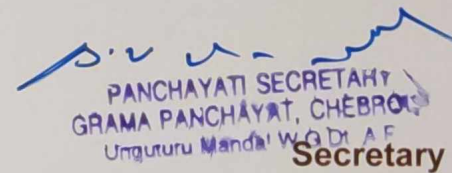 PANCHAYATI SECRETARY
GRAMA PANCHAYAT, CHEBROL
Unguturu Mandal W.G.Dt. A.P.
Secretary